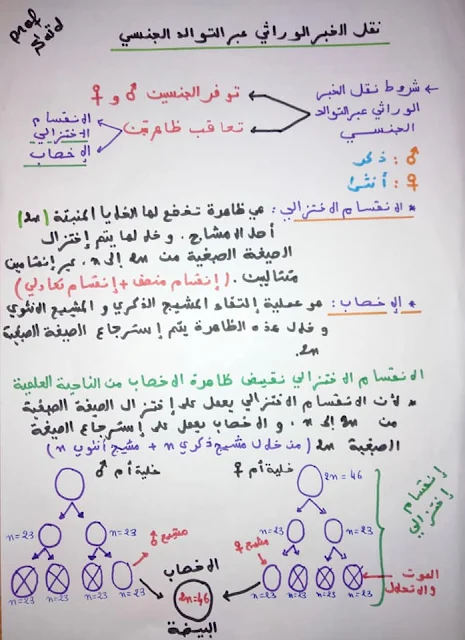 prof
Said
نقل الخبر الوراثي عبر التوالد الجنسي
← شروط نقل الخبر
الوراثي عبر التوالد
الجنسي
توفر الجنسين ♂ و ♀
تعاقب ظاهرتين
الإنقسام
الإختزالي
الإخصاب
♂ : ذكر
♀ : أنثى
* الانقسام الاختزالي : هي ظاهرة تخضع لها الخلايا المنبقة (2n)
أصل الأمشاج . و خلالها يتم إختزال
الصيغة الصبغية من 2n إلى n ، عبر إنقسامين
متتاليين . (إنقسام منصف + إنقسام تعادلي)
* الإخصاب : هو عملية إلتقاء المشيج الذكري و المشيج الأنثوي
و خلال هذه الظاهرة يتم إسترجاع الصيغة الصبغية
2n.
الانقسام الاختزالي نقيض ظاهرة الاخصاب من الناحية العلمية
* لأن الانقسام الاختزالي يعمل على إختزال الصيغة الصبغية
من 2n إلى n ، و الاخصاب يعمل على إسترجاع الصيغة
الصبغية 2n (من خلال مشيج ذكري n + مشيج أنثوي n)
خلية أم ♀
2n = 46
n=23
n=23
مشيج ♀
n=23
n=23
n=23
n=23
إنقسام
إختزالي
الموت
والانحلال
خلية أم ♂
n=23
n=23
مشيج ♂
n=23
n=23
n=23
n=23
الاخصاب
2n=46
البيضة